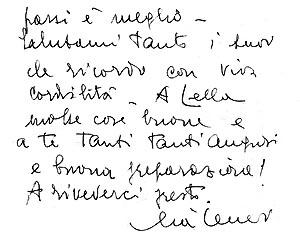 passi è meglio –
salutami tanto i tuoi
che ricordo con viva
cordialità – A Lella
molte cose buone e
a te tanti tanti auguri
e buona preparazione!
Arivederci presto.